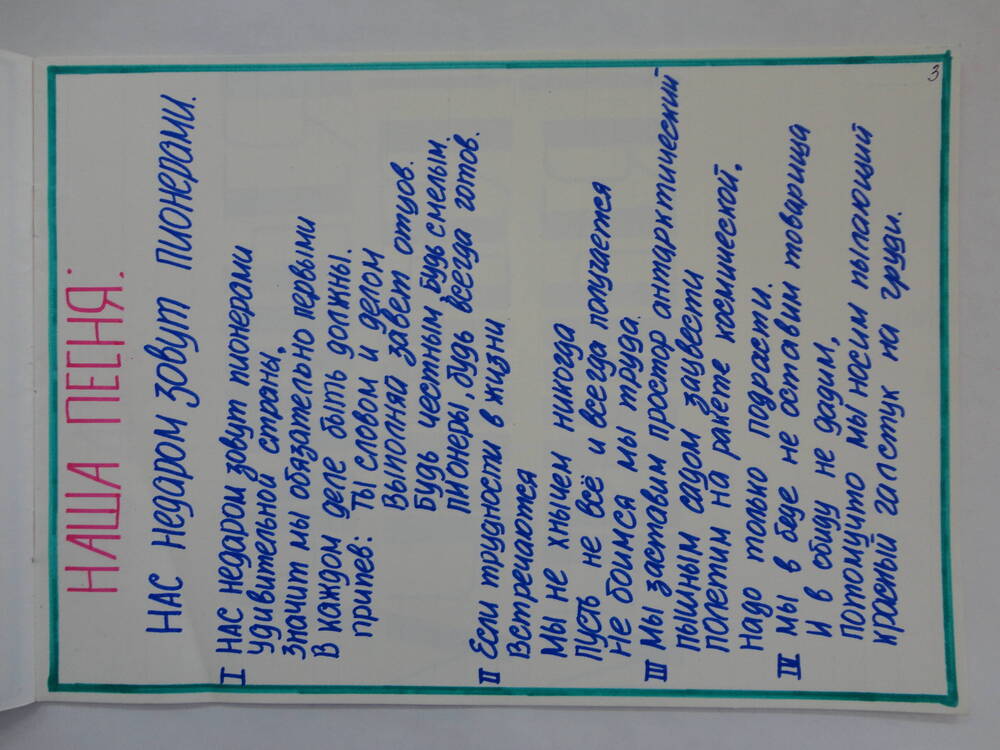 3
НАША ПЕСНЯ:
НАС НЕДАРОМ ЗОВУТ ПИОНЕРАМИ.
I НАС НЕДАРОМ ЗОВУТ ПИОНЕРАМИ
УДИВИТЕЛЬНОЙ СТРАНЫ,
ЗНАЧИТ МЫ ОБЯЗАТЕЛЬНО ПЕРВЫМИ
В КАЖДОМ ДЕЛЕ БЫТЬ ДОЛЖНЫ.
ПРИПЕВ: ТЫ СЛОВОМ И ДЕЛОМ
ВЫПОЛНЯЙ ЗАВЕТ ОТЦОВ.
БУДЬ ЧЕСТНЫМ, БУДЬ СМЕЛЫМ,
ПИОНЕРЫ, БУДЬ ВСЕГДА ГОТОВ.
II ЕСЛИ ТРУДНОСТИ В ЖИЗНИ
ВСТРЕЧАЮТСЯ
МЫ НЕ ХНЫЧЕМ НИКОГДА
ПУСТЬ НЕ ВСЁ И ВСЕГДА ПОЛУЧАЕТСЯ
НЕ БОИМСЯ МЫ ТРУДА.
III МЫ ЗАСТАВИМ ПРОСТОР АНТАРКТИЧЕСКИЙ
ПЫШНЫМ САДОМ ЗАЦВЕСТИ
ПОЛЕТИМ НА РАКЕТЕ КОСМИЧЕСКОЙ,
НАДО ТОЛЬКО ПОДРАСТИ.
IV МЫ В БЕДЕ НЕ ОСТАВИМ ТОВАРИЩА
И В ОБИДУ НЕ ДАДИМ,
ПОТОМУЧТО МЫ НОСИМ ПЫЛАЮЩИЙ
КРАСНЫЙ ГАЛСТУК НА ГРУДИ.